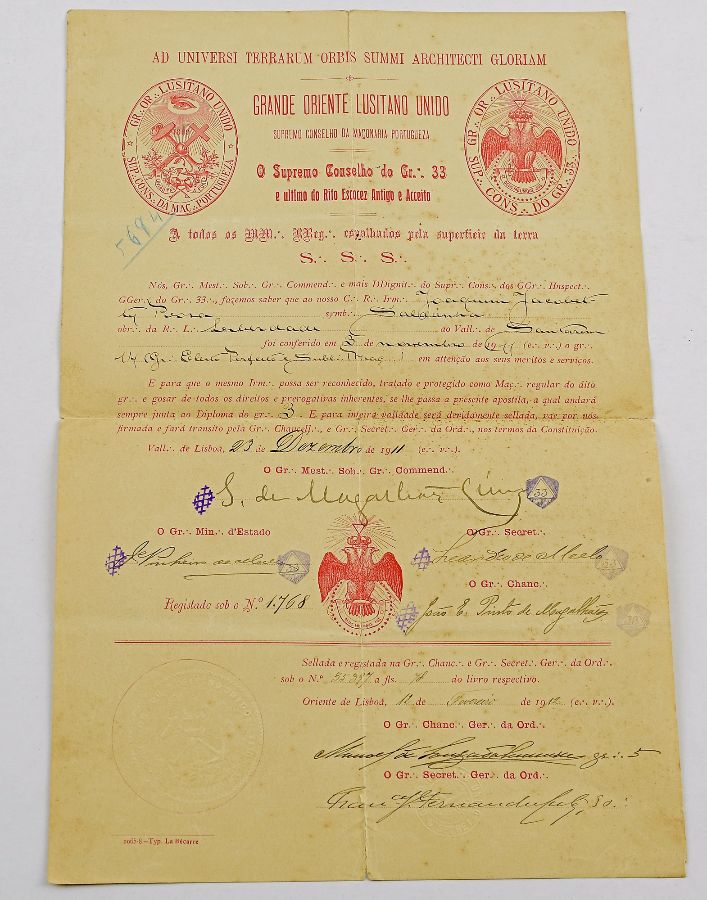 AD UNIVERSI TERRARUM ORBIS SUMMI ARCHITECTI GLORIAM
GR∴ OR∴ LUSITANO UNIDO
SUP∴ CONS∴ DA MAÇ∴ PORTUGUEZA
GRANDE ORIENTE LUSITANO UNIDO
SUPREMO CONSELHO DA MAÇONARIA PORTUGUEZA
GR∴ OR∴ LUSITANO UNIDO
SUP∴ CONS∴ DO GR∴ 33∴
O Supremo Conselho do Gr∴ 33
e ultimo do Rito Escocez Antigo e Acceito
5684
A todos os MM∴ RReg∴ espalhados pela superficie da terra
S∴ S∴ S∴
Nós, Gr∴ Mest∴ Sob∴ Gr∴ Commend∴ e mais DDignit∴ do Supr∴ Cons∴ dos GGr∴ IInspect∴
GGer∴ do Gr∴ 33∴, fazemos saber que ao nosso C∴ R∴ Irm∴ Joaquim Jacobet-
ty Rosa symb∴ Saldanha
obr∴ da R∴ L∴ Liberdade ao Vall∴ de Santarem
foi conferido em 5 de novembro de 1911 (e∴ v∴) o gr∴
14 (Gr∴ Eleito Perfeito e Subl∴ Maç∴) em attenção aos seus meritos e serviços.
E para que o mesmo Irm∴ possa ser reconhecido, tratado e protegido como Maç∴ regular do dito
gr∴ e gosar de todos os direitos e prerogativas inherentes, se lhe passa a presente apostila, a qual andará
sempre junta ao Diploma do gr∴ 3. E para inteira validade será devidamente sellada, vae por nós
firmada e fará transito pela Gr∴ Chancell∴ e Gr∴ Secret∴ Ger∴ da Ord∴, nos termos da Constituição.
Vall∴ de Lisboa, 23 de Dezembro de 1911 (e∴ v∴).
O Gr∴ Mest∴ Sob∴ Gr∴ Commend∴
S. de Magalhães Lima 33
O Gr∴ Min∴ d'Estado
O Gr∴ Secret∴
33
33
O Gr∴ Chanc∴
Registado sob o N.º 1.768
João E. Pinto de Magalhães
Sellada e registada na Gr∴ Chanc∴ e Gr∴ Secret∴ Ger∴ da Ord∴
sob o N.º a fls. do livro respectivo.
Oriente de Lisboa, 12 de Fevereiro de 1912 (e∴ v∴).
O Gr∴ Chanc∴ Ger∴ da Ord∴
Manoel de gr∴ 5
O Gr∴ Secret∴ Ger∴ da Ord∴
30∴
2065-S—Typ. La Bécarre